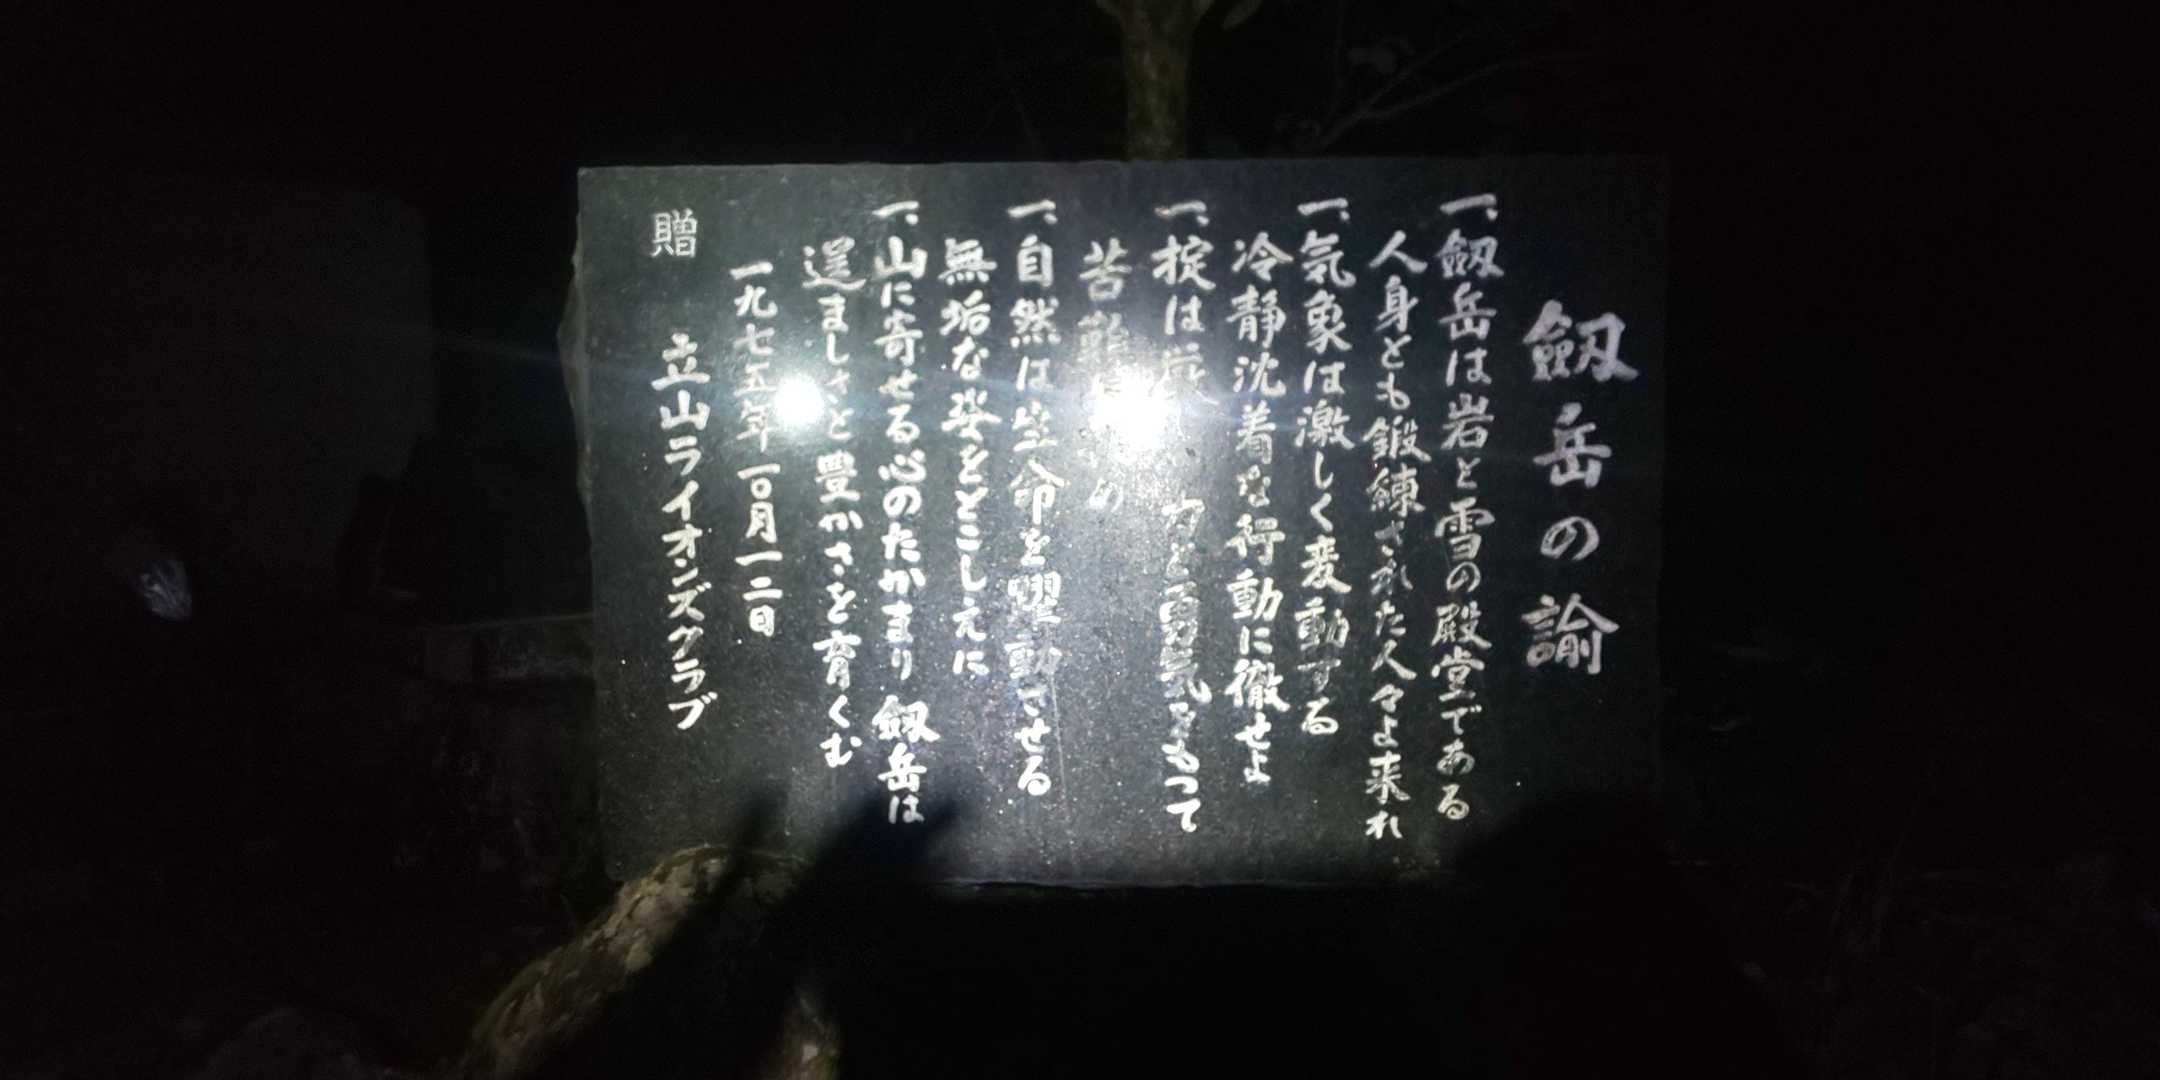 劔岳の諭
一、劔岳は岩と雪の殿堂である
人身とも鍛練された人々よ来れ
一、気象は激しく変動する
冷静沈着な行動に徹せよ
一、掟は厳 力と勇気をもつて
苦難 め
一、自然は生命を躍動させる
無垢な姿をとこしえに
一、山に寄せる心のたかまり 劔岳は
逞ましさと豊かさを育くむ
一九七五年一〇月一二日
贈 立山ライオンズクラブ